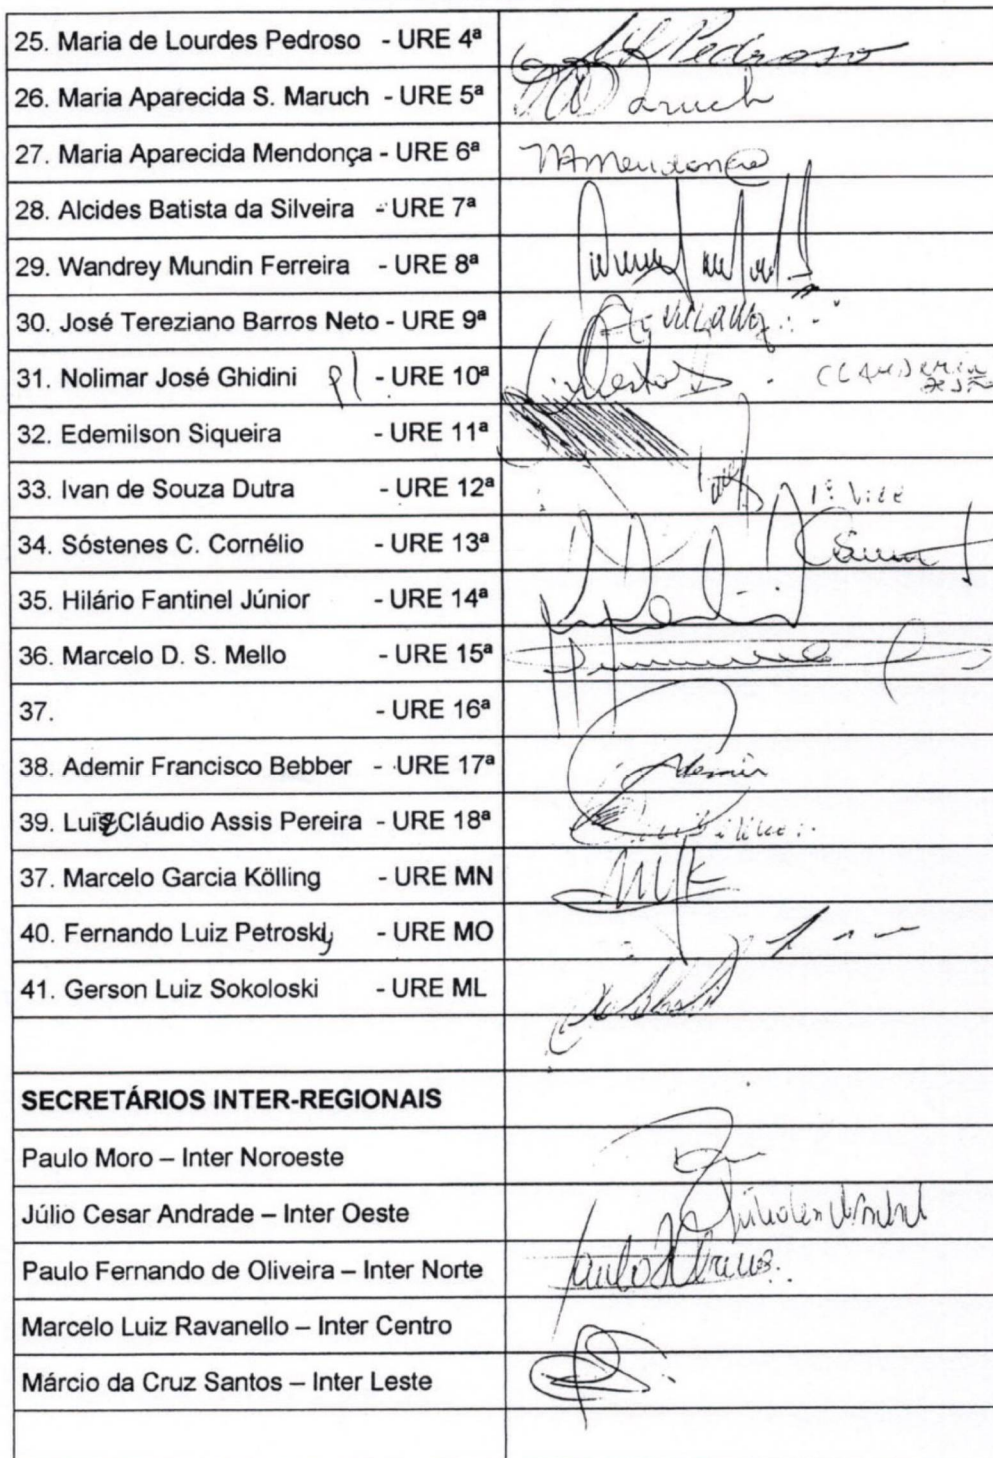 25. Maria de Lourdes Pedroso - URE 4ª Pedroso
26. Maria Aparecida S. Maruch - URE 5ª Maruch
27. Maria Aparecida Mendonça - URE 6ª MAMendonça
28. Alcides Batista da Silveira - URE 7ª
29. Wandrey Mundin Ferreira - URE 8ª
30. José Tereziano Barros Neto - URE 9ª
31. Nolimar José Ghidini p/ - URE 10ª
32. Edemilson Siqueira - URE 11ª
33. Ivan de Souza Dutra - URE 12ª 1º Vice
34. Sóstenes C. Cornélio - URE 13ª
35. Hilário Fantinel Júnior - URE 14ª
36. Marcelo D. S. Mello - URE 15ª
37. - URE 16ª
38. Ademir Francisco Bebber - URE 17ª Ademir
39. Luiz Cláudio Assis Pereira - URE 18ª
37. Marcelo Garcia Kölling - URE MN
40. Fernando Luiz Petrosky - URE MO
41. Gerson Luiz Sokoloski - URE ML
SECRETÁRIOS INTER-REGIONAIS
Paulo Moro – Inter Noroeste
Júlio Cesar Andrade – Inter Oeste
Paulo Fernando de Oliveira – Inter Norte
Marcelo Luiz Ravanello – Inter Centro
Márcio da Cruz Santos – Inter Leste